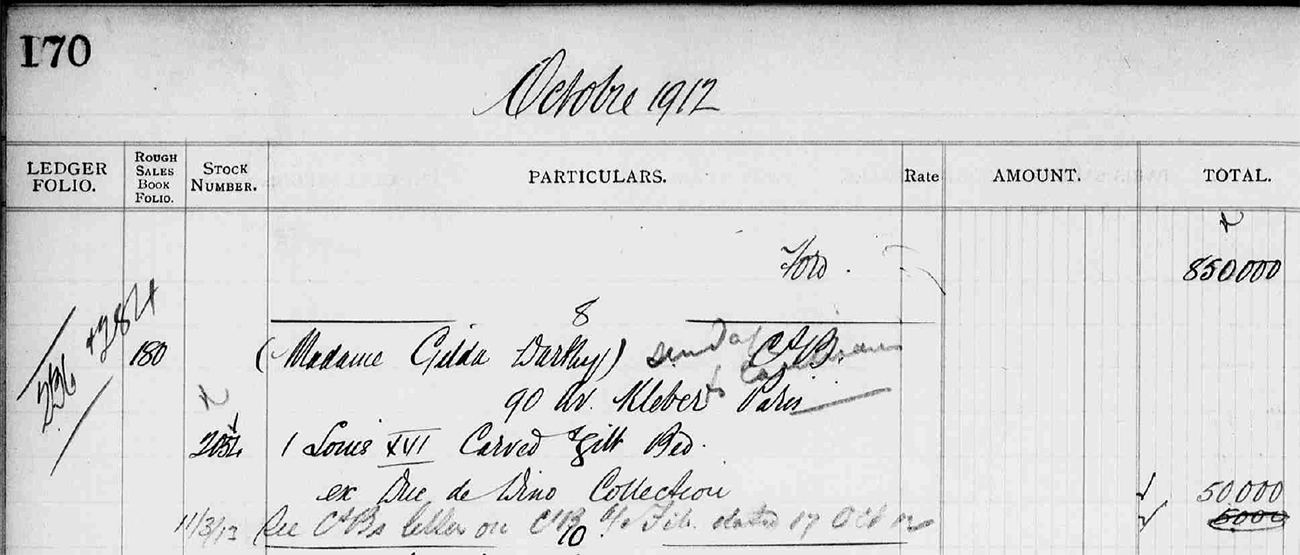 170
Octobre 1912
LEDGER FOLIO.
ROUGH SALES BOOK FOLIO.
STOCK NUMBER.
PARTICULARS.
Rate
AMOUNT.
TOTAL.
Ford.
850,000
8
236
180
(Madame Gilda Darthy) CAB
90 Av. Kleber Paris
2054 1 Louis XVI Carved & Gilt Bed.
ex Duc de Dino Collection 50,000
11/3/13 See letter on dated 17 Oct 12 5000
10